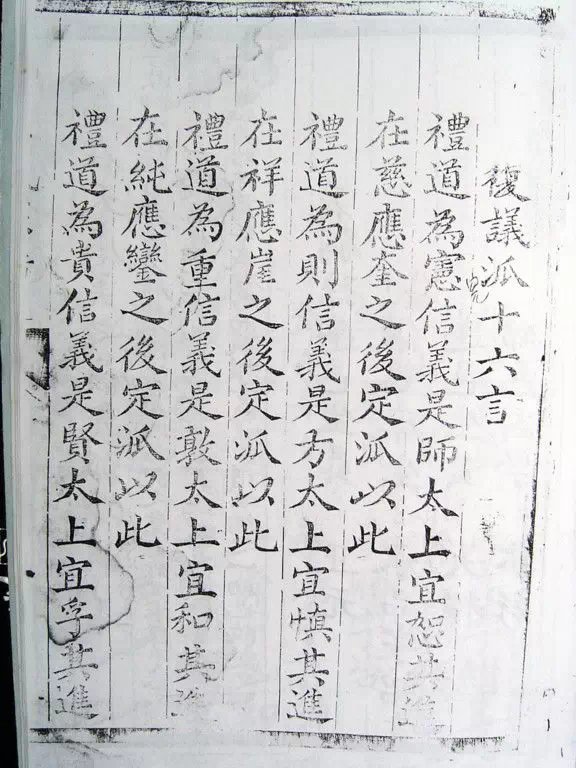 復議派十六言
禮道為憲信義是師太上宜恕其進
在慈應奎之後定派以此
禮道為則信義是方太上宜慎其進
在祥應崖之後定派以此
禮道為重信義是敦太上宜和其進
在純應鑾之後定派以此
禮道為貴信義是賢太上宜孚其進